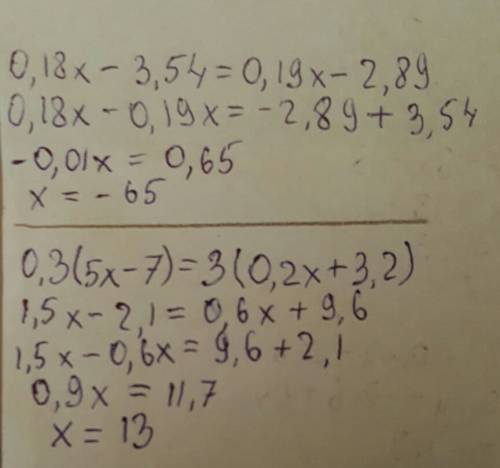 0,18x - 3,54 = 0,19x - 2,89
0,18x - 0,19x = -2,89 + 3,54
-0,01x = 0,65
x = -65
0,3(5x-7) = 3(0,2x+3,2)
1,5x - 2,1 = 0,6x + 9,6
1,5x - 0,6x = 9,6 + 2,1
0,9x = 11,7
x = 13